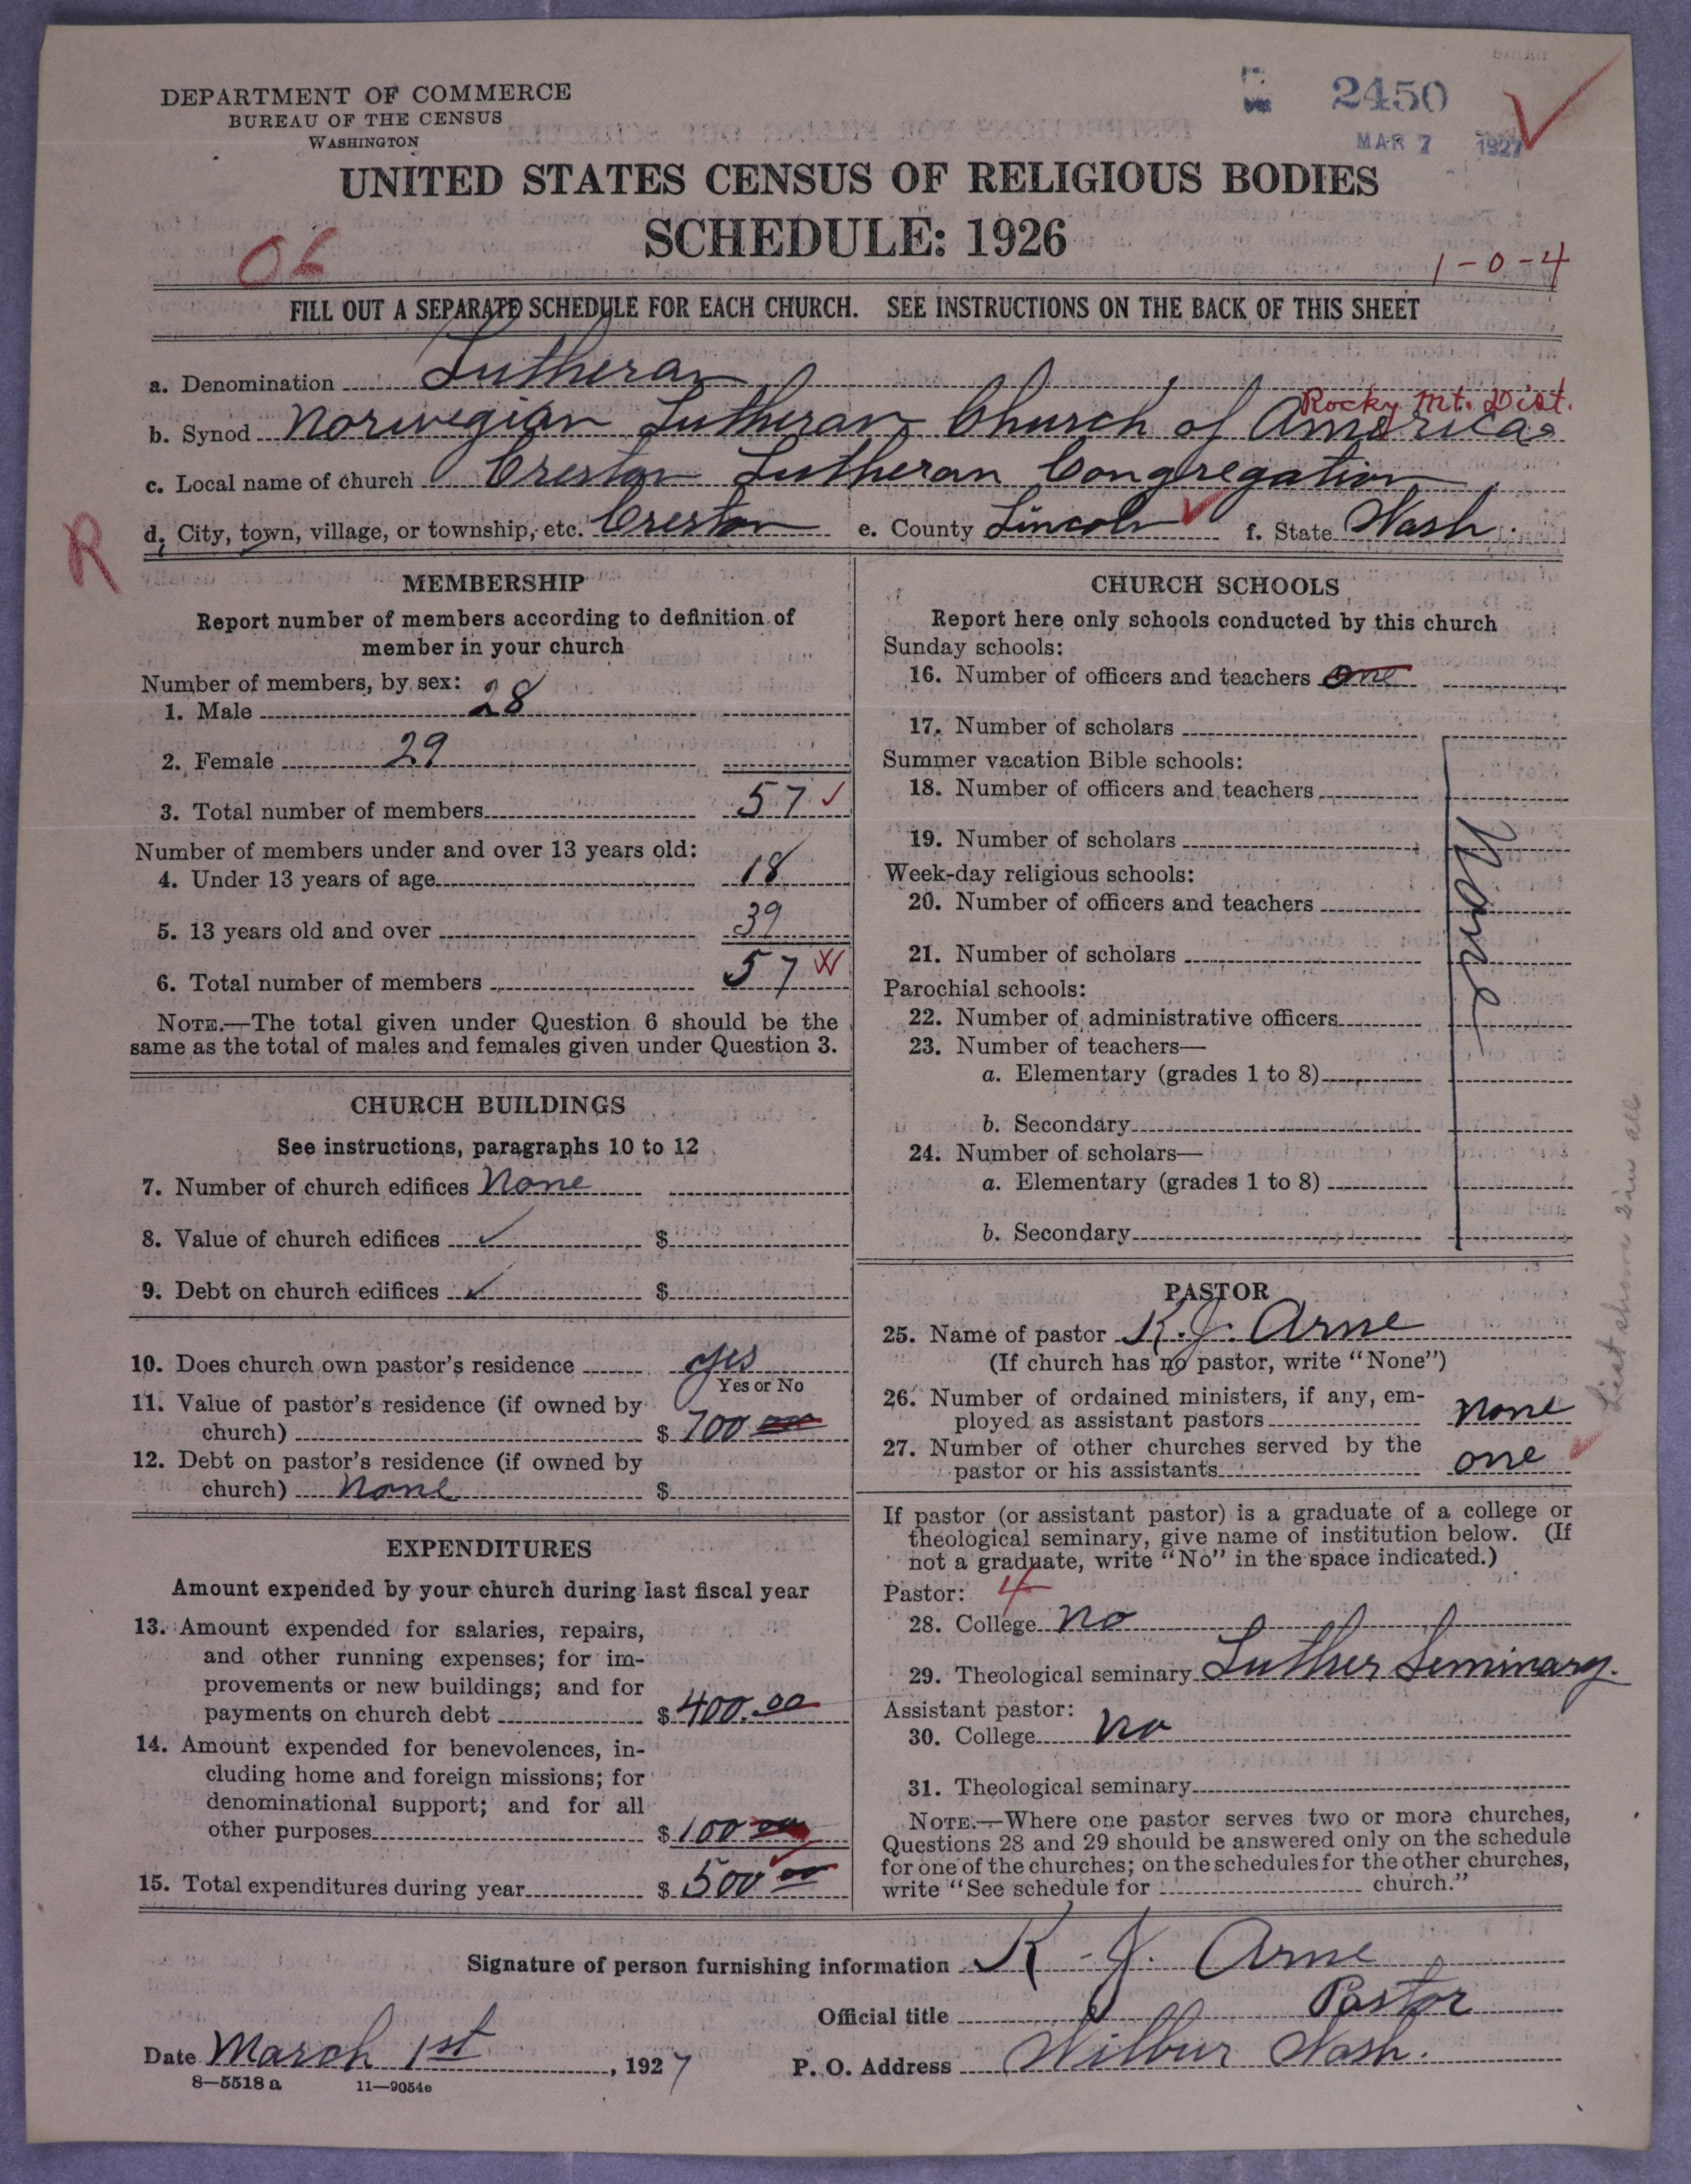 DEPARTMENT OF COMMERCE
BUREAU OF THE CENSUS
WASHINGTON
2450
MAR 7 1927
UNITED STATES CENSUS OF RELIGIOUS BODIES
SCHEDULE: 1926
1-0-4
FILL OUT A SEPARATE SCHEDULE FOR EACH CHURCH. SEE INSTRUCTIONS ON THE BACK OF THIS SHEET
a. Denomination Lutheran
Rocky Mt. Dist.
b. Synod Norwegian Lutheran Church of America
c. Local name of church Creston Lutheran Congregation
R
d. City, town, village, or township, etc. Creston e. County Lincoln f. State Wash.
MEMBERSHIP
Report number of members according to definition of
member in your church
Number of members, by sex:
1. Male 28
2. Female 29
3. Total number of members 57
Number of members under and over 13 years old:
4. Under 13 years of age 18
5. 13 years old and over 39
6. Total number of members 57
NOTE.—The total given under Question 6 should be the
same as the total of males and females given under Question 3.
CHURCH BUILDINGS
See instructions, paragraphs 10 to 12
7. Number of church edifices None
8. Value of church edifices $
9. Debt on church edifices $
10. Does church own pastor's residence yes
Yes or No
11. Value of pastor's residence (if owned by
church) $ 700 00
12. Debt on pastor's residence (if owned by
church) None $
EXPENDITURES
Amount expended by your church during last fiscal year
13. Amount expended for salaries, repairs,
and other running expenses; for im-
provements or new buildings; and for
payments on church debt $ 400.00
14. Amount expended for benevolences, in-
cluding home and foreign missions; for
denominational support; and for all
other purposes $ 100 00
15. Total expenditures during year $ 500 00
CHURCH SCHOOLS
Report here only schools conducted by this church
Sunday schools:
16. Number of officers and teachers One
17. Number of scholars
Summer vacation Bible schools:
18. Number of officers and teachers
19. Number of scholars
None
Week-day religious schools:
20. Number of officers and teachers
21. Number of scholars
Parochial schools:
22. Number of administrative officers
23. Number of teachers—
a. Elementary (grades 1 to 8)
b. Secondary
24. Number of scholars—
a. Elementary (grades 1 to 8)
b. Secondary
PASTOR
25. Name of pastor K. J. Arne
(If church has no pastor, write "None")
26. Number of ordained ministers, if any, em-
ployed as assistant pastors None
27. Number of other churches served by the
pastor or his assistants one
If pastor (or assistant pastor) is a graduate of a college or
theological seminary, give name of institution below. (If
not a graduate, write "No" in the space indicated.)
Pastor: 4
28. College No
29. Theological seminary Luther Seminary.
Assistant pastor:
30. College No
31. Theological seminary
NOTE.—Where one pastor serves two or more churches,
Questions 28 and 29 should be answered only on the schedule
for one of the churches; on the schedules for the other churches,
write "See schedule for church."
Signature of person furnishing information K. J. Arne
Official title Pastor
Date March 1st, 1927 P. O. Address Wilbur Wash.
8—5518 a 11—9054e